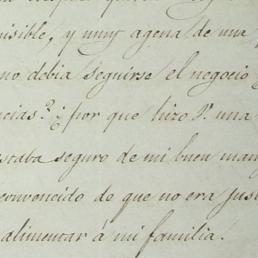 isible, y muy agena de una
no debia seguirse el negocio
ncias? ¿por que hizo V. una
estaba seguro de mi buen man
convencido de que no era jus
alimentar á mi familia.